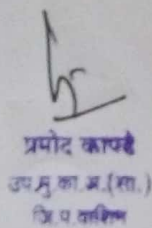 प्रमोद कापडे
उप मु. का. अ. (सा.)
जि. प. वाशिम